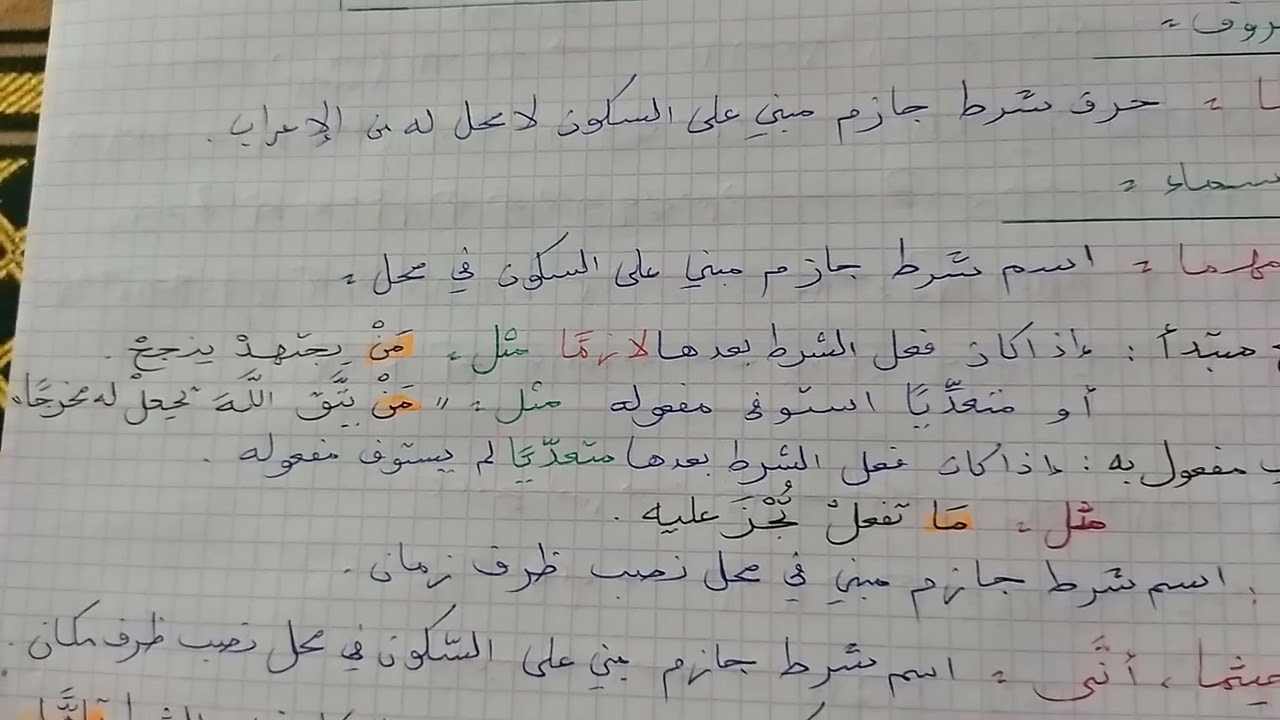 حرف شرط جازم مبني على السكون لا محل له من الإعراب .
مهما = اسم شرط جازم مبني على السكون في محل =
مبتدأ : إذا كان فعل الشرط بعدها لازمًا مثل = مَنْ يجتهدْ ينجحْ .
أو متعدِّيًا استوفى مفعوله مثل = " مَنْ يتَّقِ اللَّهَ يجعلْ له مخرجًا "
مفعول به : إذا كان فعل الشرط بعدها متعدّيًا لم يستوف مفعوله .
مثل = مَا تفعلْ تُجْزَ عليه .
: اسم شرط جازم مبني في محل نصب ظرف زمان .
حيثما ، أنَّى = اسم شرط جازم مبني على السّكون في محل نصب ظرف مكان .